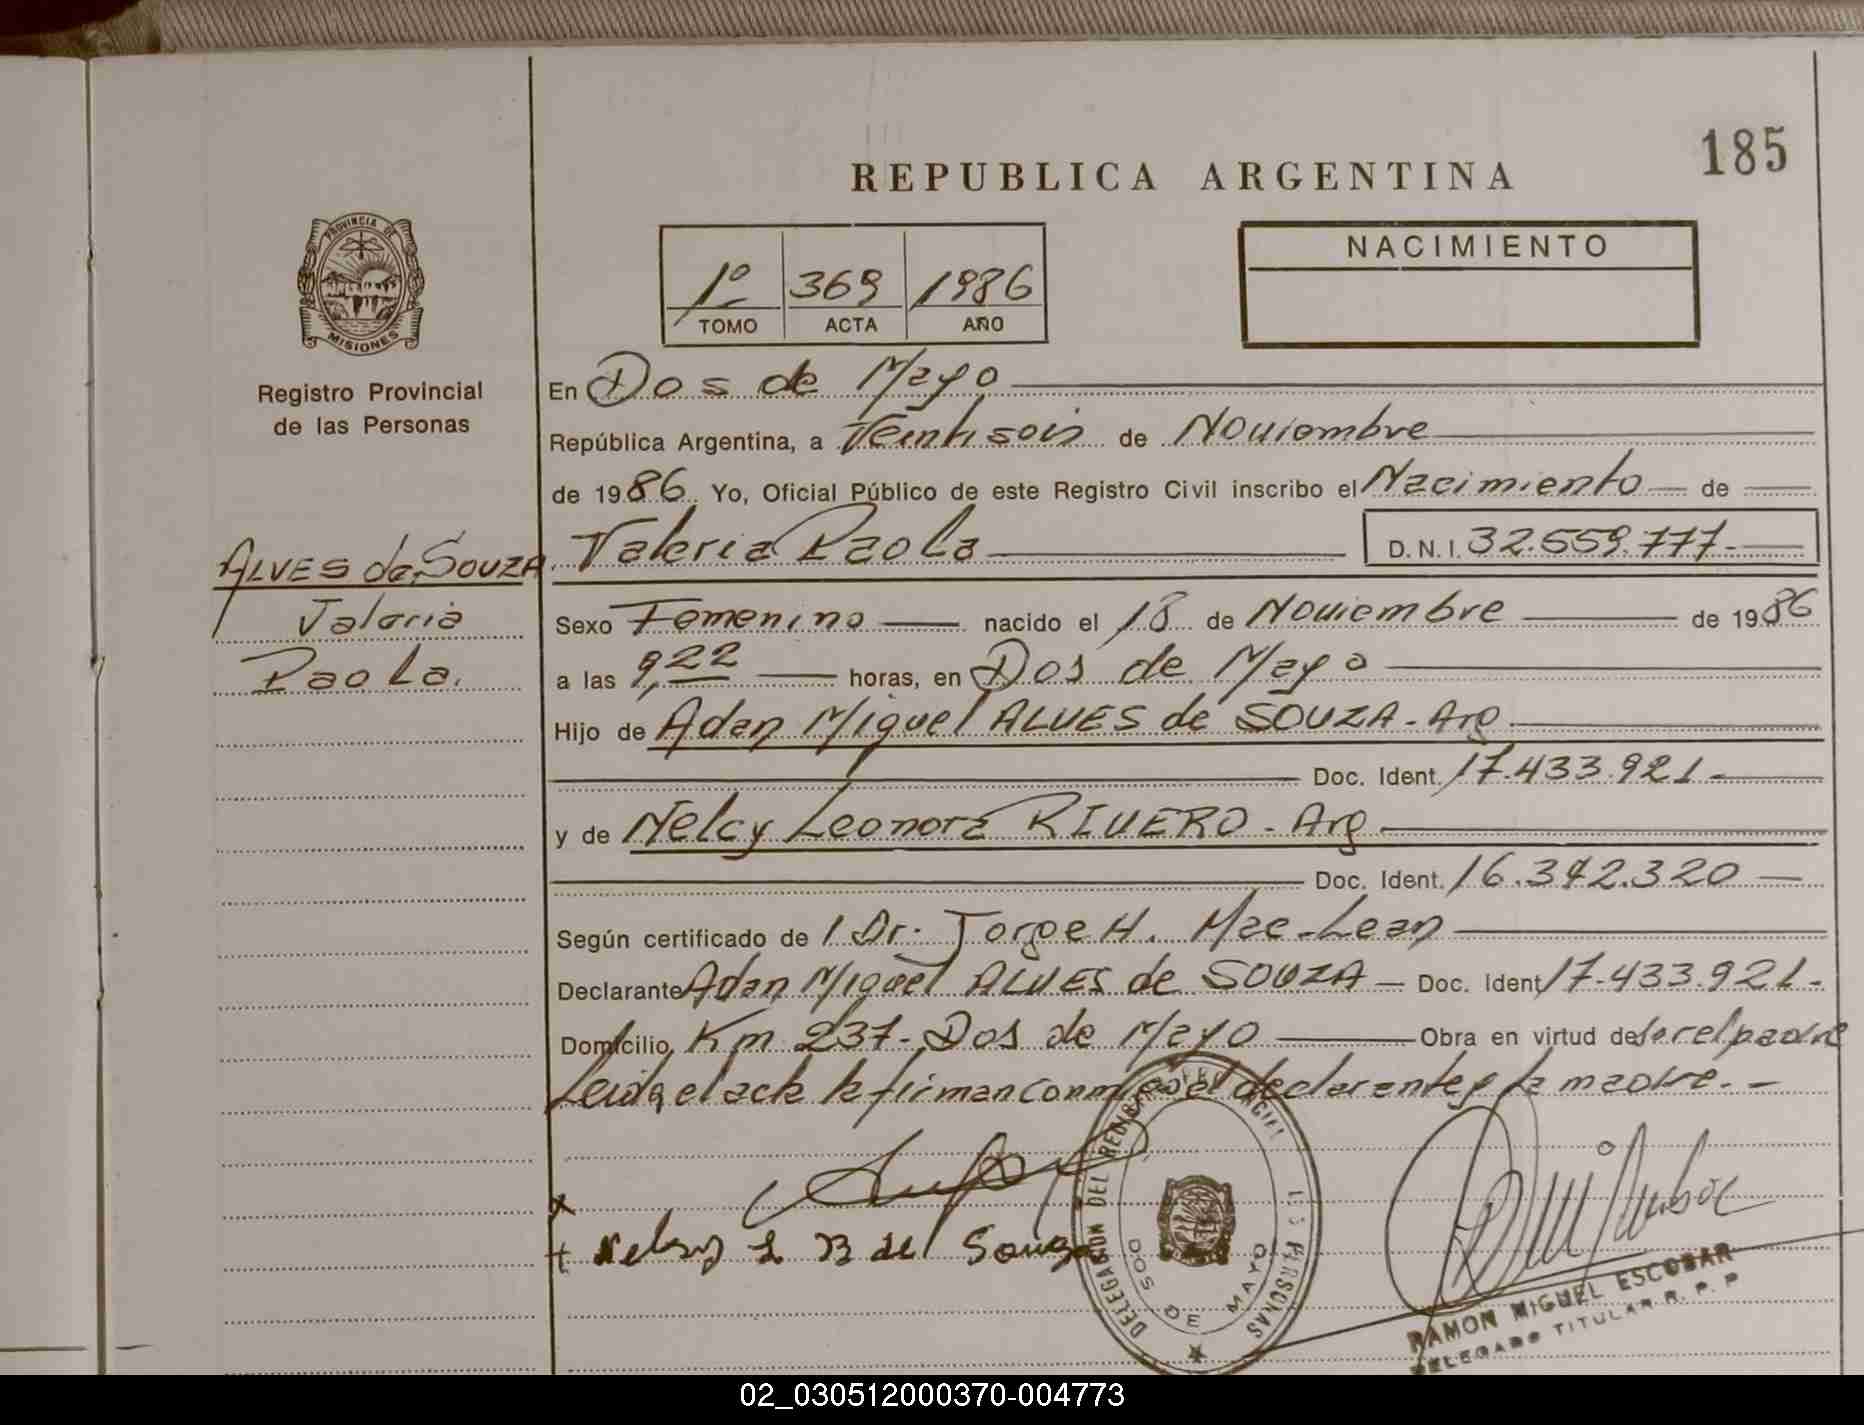 185
REPUBLICA ARGENTINA
PROVINCIA DE
MISIONES
Registro Provincial
de las Personas
1º 369 1986
TOMO ACTA AÑO
NACIMIENTO
En Dos de Mayo
República Argentina, a Veintiseis de Noviembre
de 1986 Yo, Oficial Público de este Registro Civil inscribo el Nacimiento de
ALVES de SOUZA Valeria Paola D.N.I. 32.559.777-
Valeria
Paola.
Sexo Femenino nacido el 18 de Noviembre de 1986
a las 9,22 horas, en Dos de Mayo
Hijo de Adan Miguel ALVES de SOUZA - Arg
Doc. Ident. 17.433.921-
y de Nelcy Leonora RIVERO - Arg
Doc. Ident. 16.372.320
Según certificado de 1 Dr. Jorge H. Mac-Lean
Declarante Adan Miguel ALVES de SOUZA - Doc. Ident 17.433.921-
Domicilio Km 237- Dos de Mayo Obra en virtud de ser el padre
Leida el acta la firman conmigo el declarante y la madre. -
DELEGACION DEL REGISTRO PROVINCIAL
LAS PERSONAS
DOS DE MAYO
RAMON MIGUEL ESCOBAR
DELEGADO TITULAR R. P. P
02_030512000370-004773